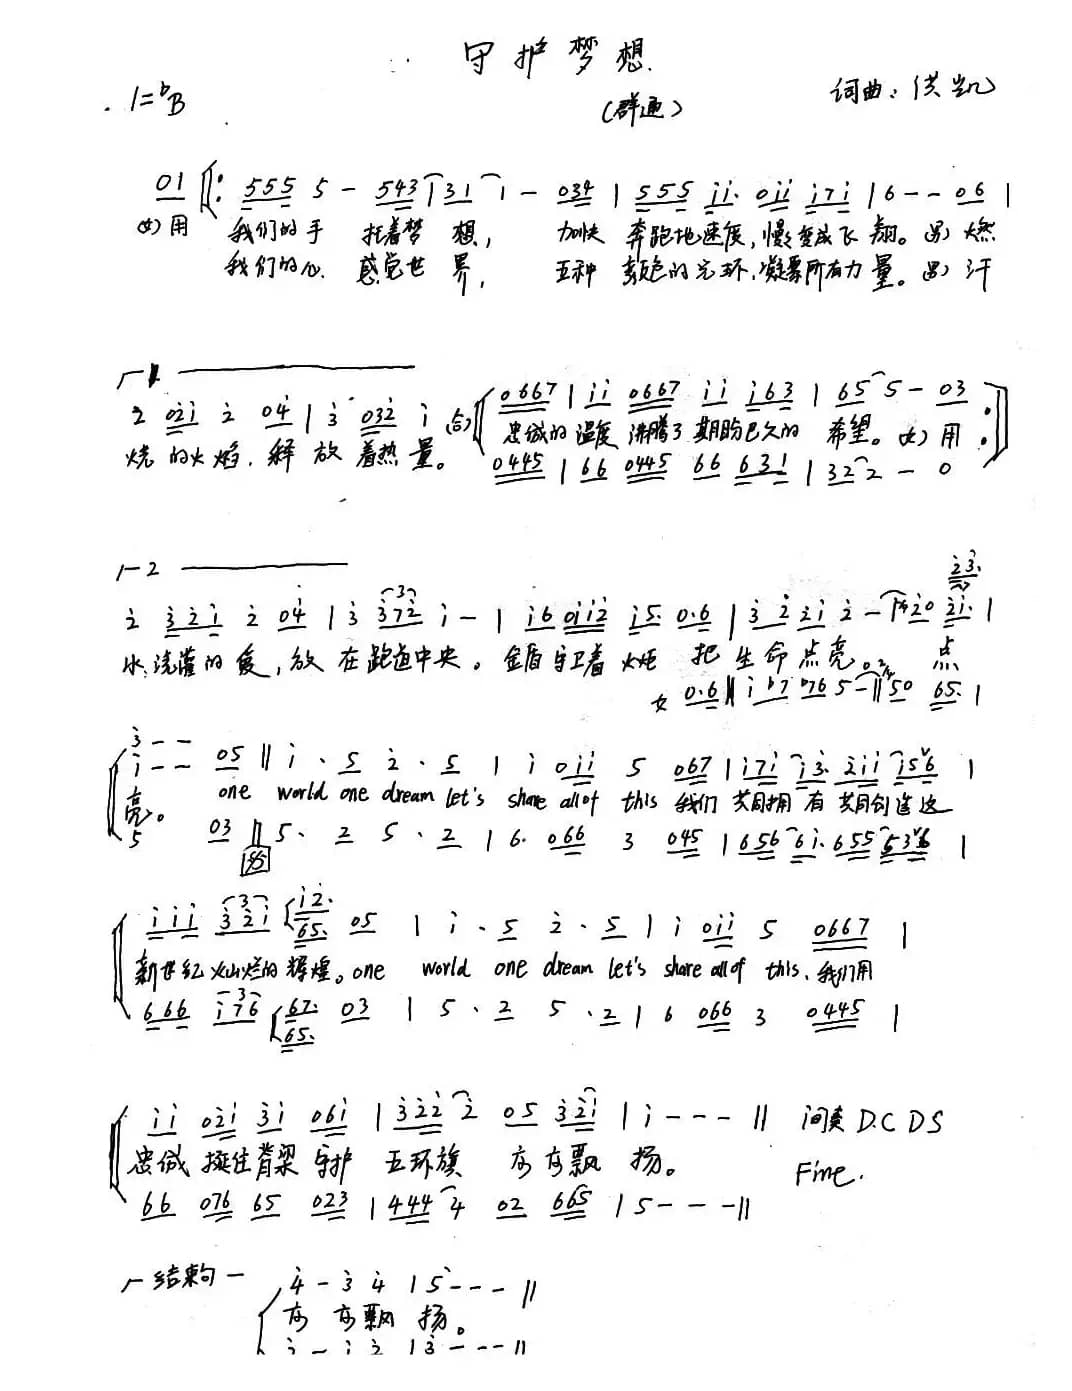 守护梦想
1=ᵇB
(群通)
词曲：洪凯
01 ‖: 555 5 - 543 | 31 1 - 034 | 555 i i. 0ii i7i | 6 - - 06 |
女)用 我们的手 托着梦 想， 加快 奔跑地速度，慢变成飞 翔。男)燃
我们的心 感觉世 界， 五种 颜色的完环，凝聚所有力 量。男)汗
1
2 02i 2 04 | 3 032 i (合) 0667 | ii 0667 ii i63 | 65 5 - 03 :‖
烧 的火焰，释 放 着热 量。 忠诚的 温度 沸腾了 期盼已久的 希望。女)用
0445 | 66 0445 66 631 | 32 2 - 0
2
2 321 2 04 | 3 372 i - | i6 0ii2 i5. 0.6 | 3 2 2i 2 - 20 2i. | 23.
水，浇灌的爱，放 在跑道中央。金盾守卫着 火炬 把 生命点亮。 点
女 0.6 ‖ i ᵇ7 ᵇ76 5 - ‖ 50 65. |
3 - -
i - - 05 ‖ i . 5 2 . 5 | i 0ii 5 067 | i7i i3. 2ii i56 |
亮。 one world one dream let's share all of this 我们 共同拥 有 共同创造这
5 03 ‖ 5 . 2 5 . 2 | 6. 066 3 045 | 656 6i. 655 536 |
iii 321 i2. 65. 05 | i . 5 2 . 5 | i 0ii 5 0667 |
新世纪 灿烂的 辉煌。one world one dream let's share all of this. 我们用
666 i76 67. 65. 03 | 5 . 2 5 . 2 | 6 066 3 0445 |
ii 02i 3i 06i | 322 2 05 32i | i - - - ‖ 间奏 D.C D S
忠诚 挺住脊梁 守护 五环旗 高高飘 扬。 Fine.
66 076 65 023 | 444 4 02 665 | 5 - - - ‖
结束句
4 - 3 4 | 5 - - - ‖
高 高飘 扬。
i - i 2 | 3 - - - ‖